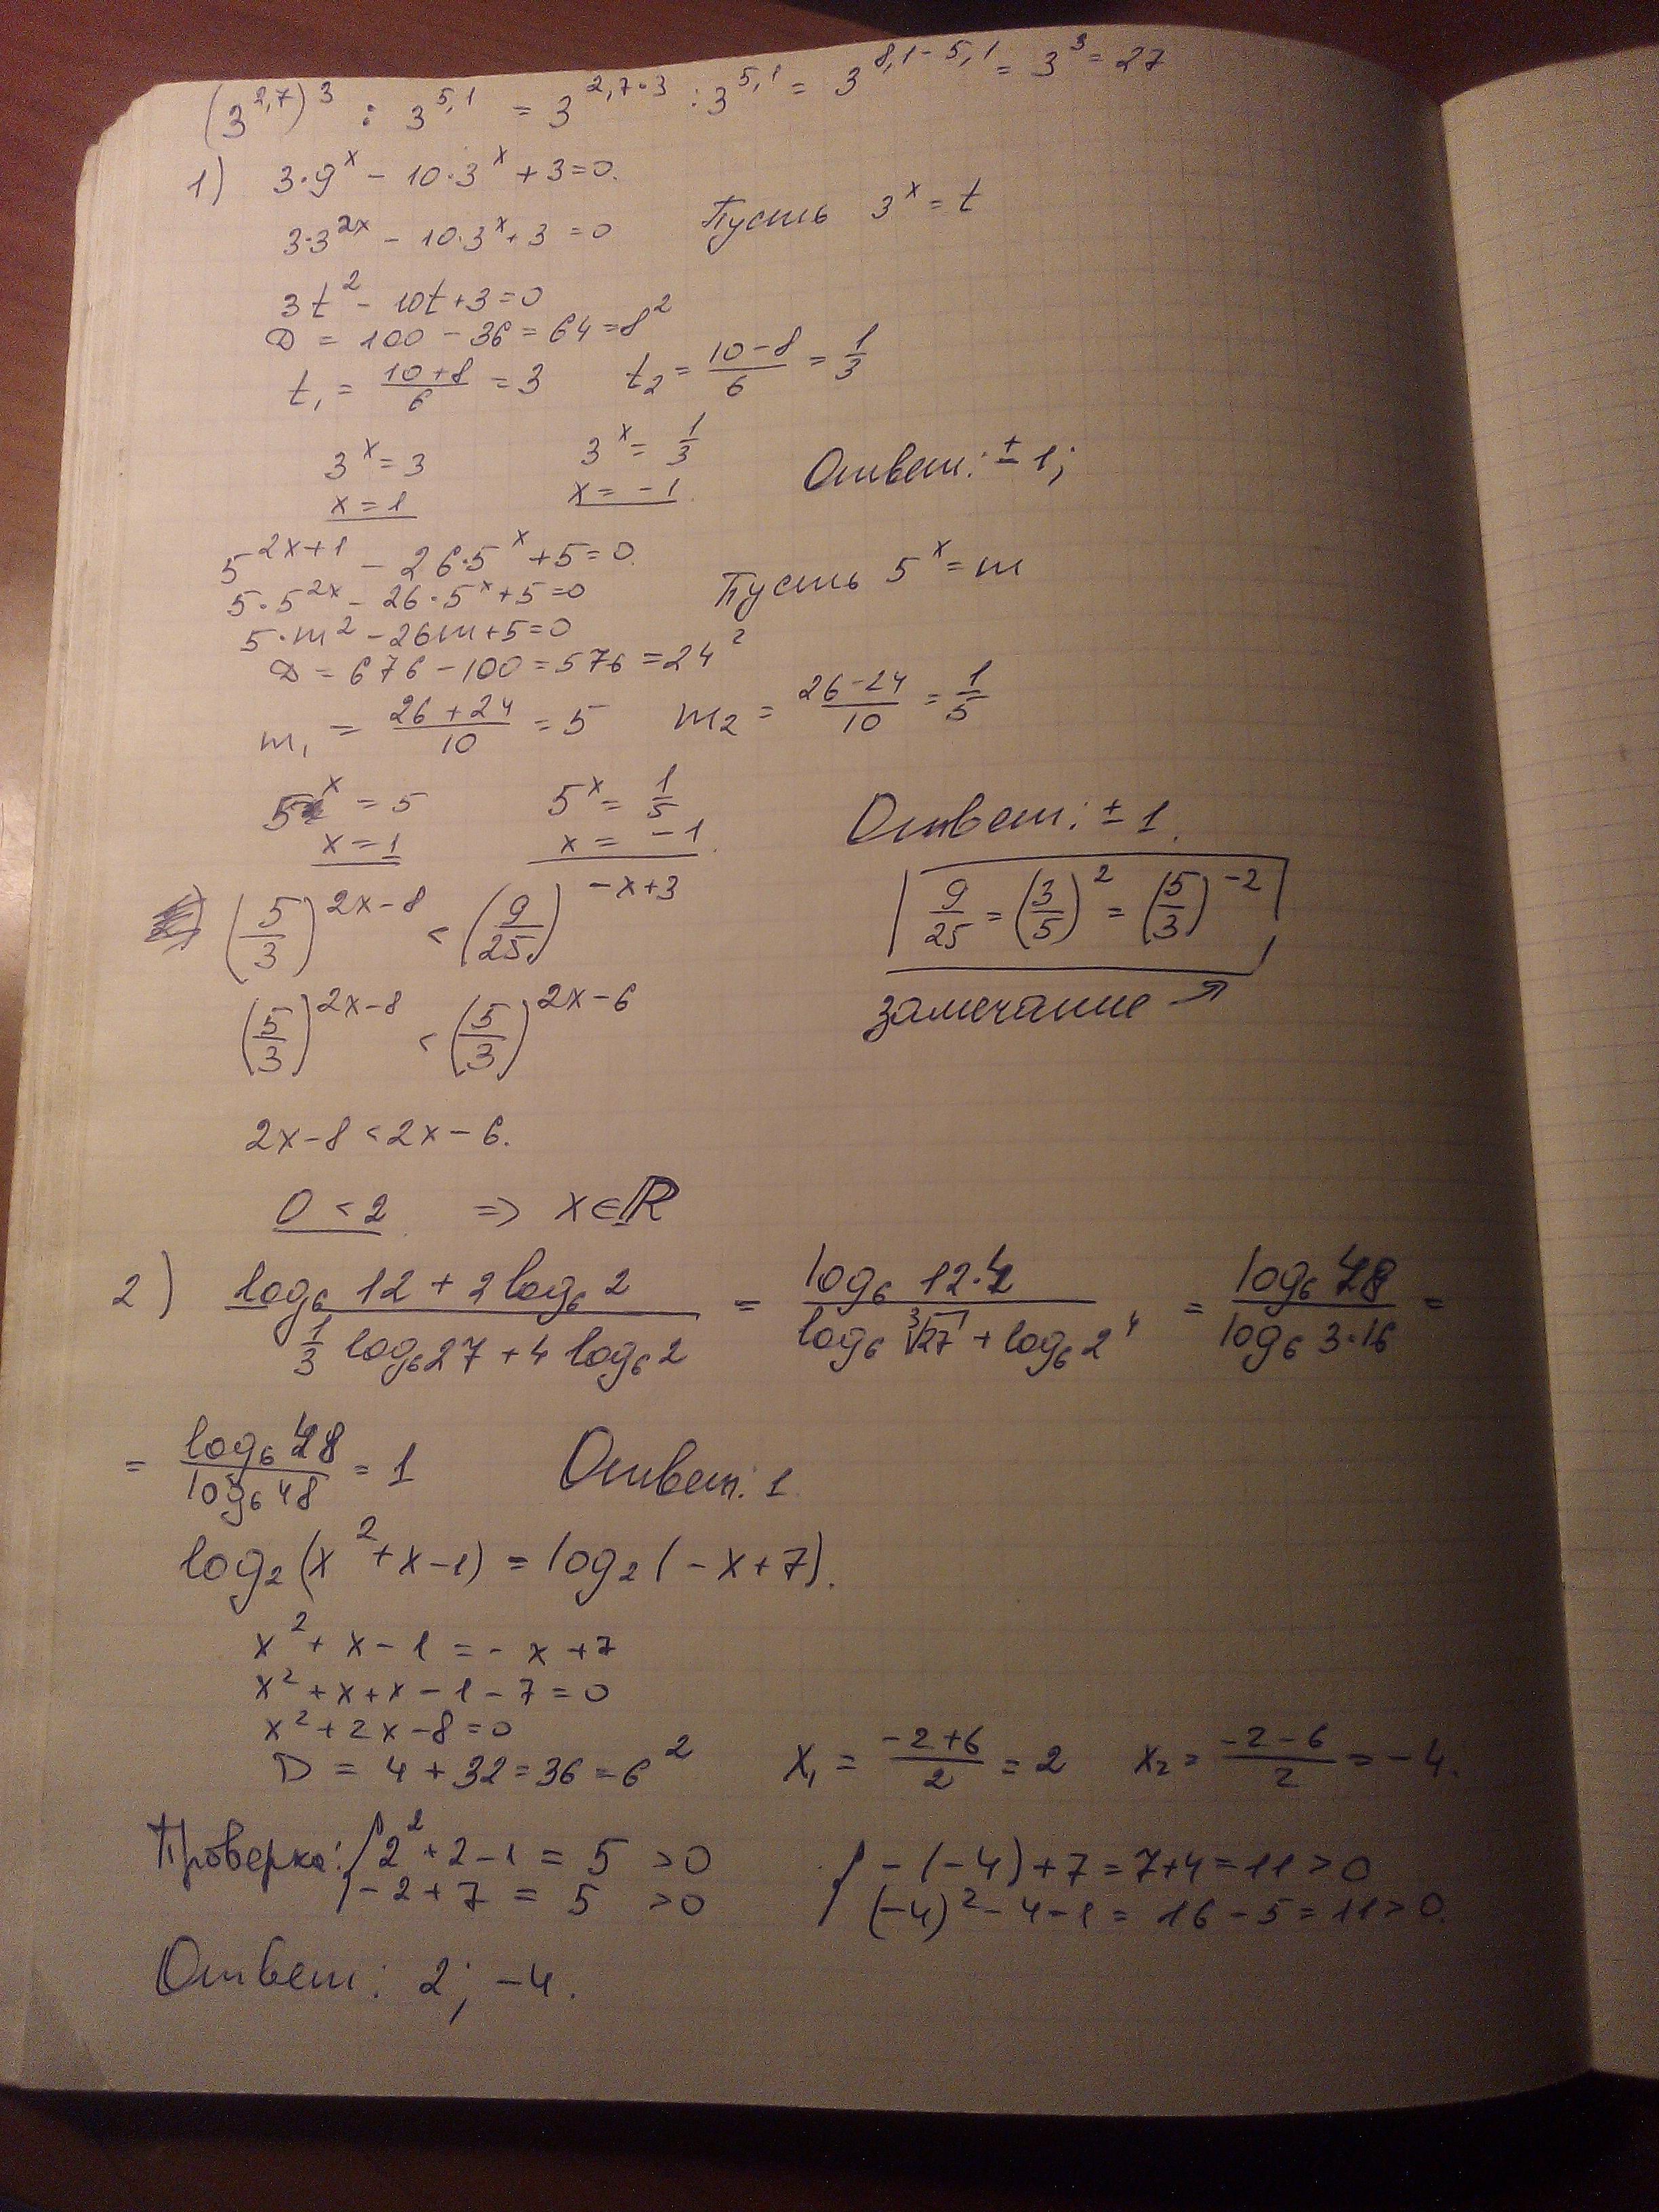 (3^{2,7})^3 : 3^{5,1} = 3^{2,7·3} : 3^{5,1} = 3^{8,1-5,1} = 3^3 = 27
1) 3·9^x - 10·3^x + 3 = 0.
3·3^{2x} - 10·3^x + 3 = 0 Пусть 3^x = t
3t^2 - 10t + 3 = 0
D = 100 - 36 = 64 = 8^2
t_1 = \frac{10+8}{6} = 3 t_2 = \frac{10-8}{6} = \frac{1}{3}
3^x = 3 3^x = \frac{1}{3} Ответ: ± 1;
x = 1 x = -1
5^{2x+1} - 26·5^x + 5 = 0
5·5^{2x} - 26·5^x + 5 = 0 Пусть 5^x = m
5·m^2 - 26m + 5 = 0
D = 676 - 100 = 576 = 24^2
m_1 = \frac{26+24}{10} = 5 m_2 = \frac{26-24}{10} = \frac{1}{5}
5^x = 5 5^x = \frac{1}{5} Ответ: ± 1.
x = 1 x = -1
(\frac{5}{3})^{2x-8} < (\frac{9}{25})^{-x+3} \frac{9}{25} = (\frac{3}{5})^2 = (\frac{5}{3})^{-2}
(\frac{5}{3})^{2x-8} < (\frac{5}{3})^{2x-6} замечание →
2x - 8 < 2x - 6.
0 < 2 => x ∈ ℝ
2) \frac{log_6 12 + 2 log_6 2}{\frac{1}{3} log_6 27 + 4 log_6 2} = \frac{log_6 12·4}{log_6 ∛27 + log_6 2^4} = \frac{log_6 48}{log_6 3·16} =
= \frac{log_6 48}{log_6 48} = 1 Ответ: 1
log_2 (x^2 + x - 1) = log_2 (-x + 7).
x^2 + x - 1 = - x + 7
x^2 + x + x - 1 - 7 = 0
x^2 + 2x - 8 = 0
D = 4 + 32 = 36 = 6^2 x_1 = \frac{-2+6}{2} = 2 x_2 = \frac{-2-6}{2} = -4.
Проверка: { 2^2 + 2 - 1 = 5 > 0 { -(-4) + 7 = 7+4 = 11 > 0
-2 + 7 = 5 > 0 (-4)^2 - 4 - 1 = 16 - 5 = 11 > 0.
Ответ: 2; -4.